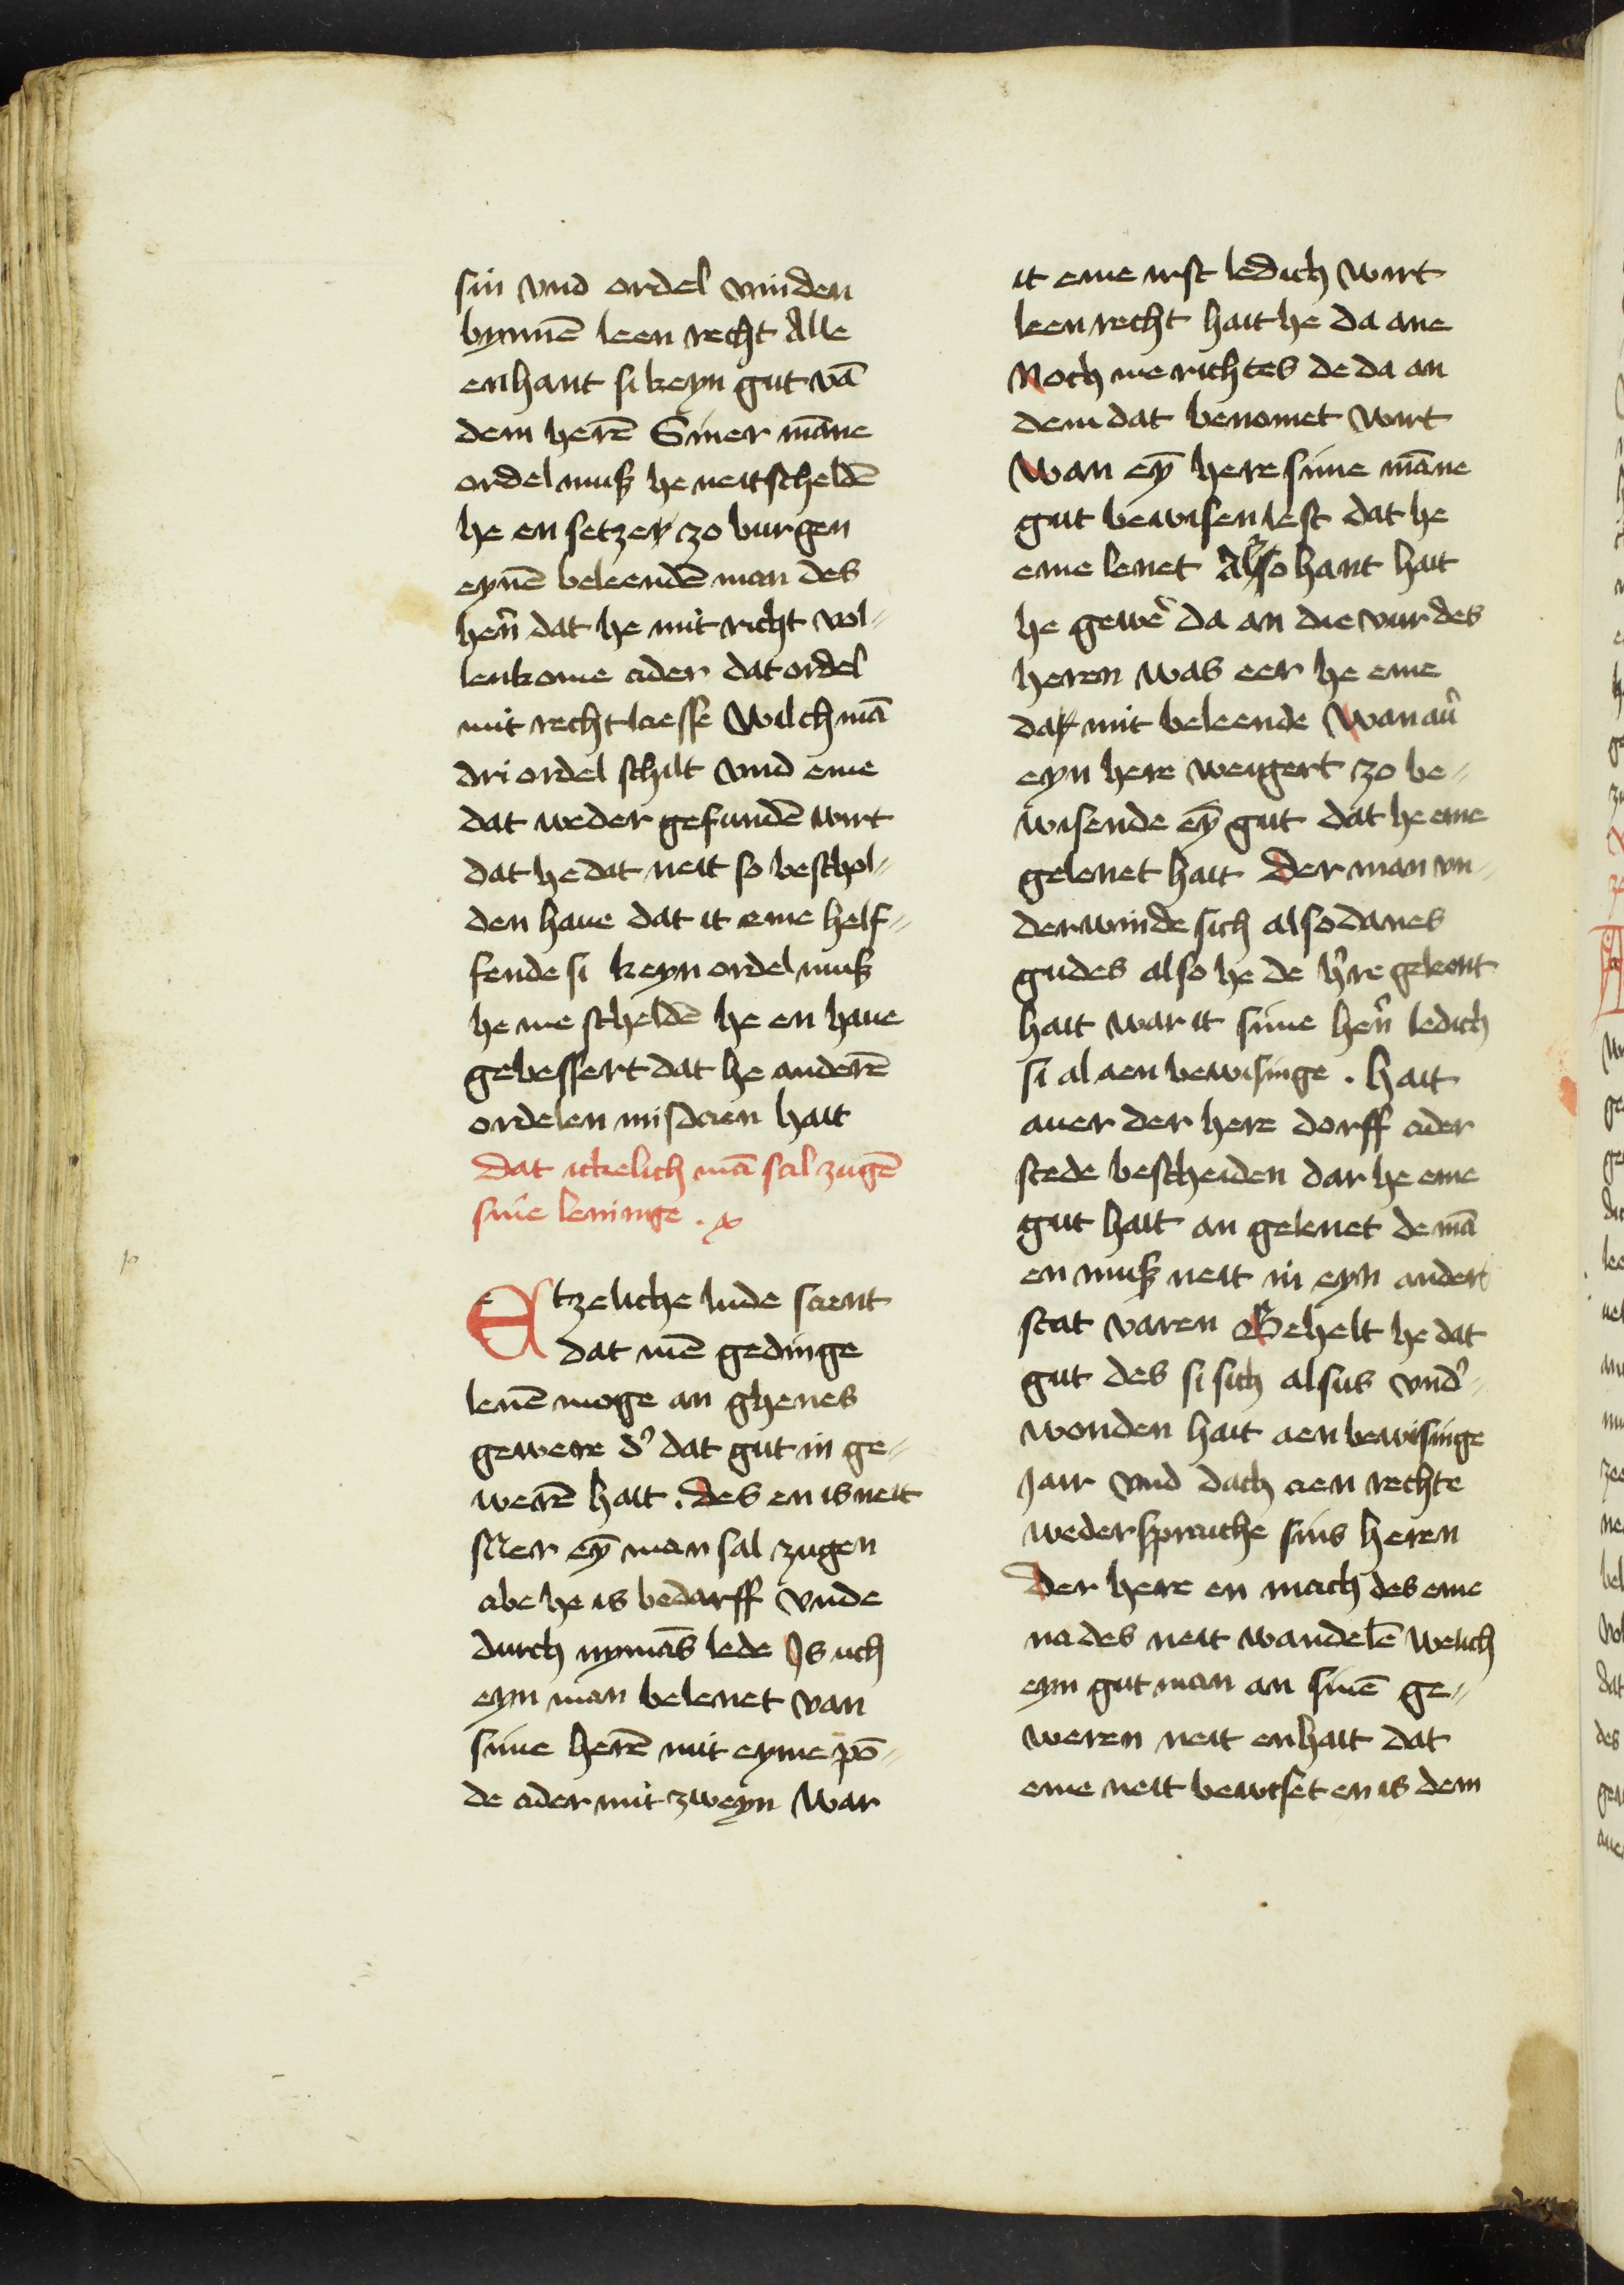 sin vnd ordel vinden
bynnē leen recht Alle
enhant si keyn gut vā
dem herē Siner māne
ordel muß he neit scheldē
he en setze zo burgen
eynē beleendē man des
hern̄ dat he mit richt vol=
lenkome ader dat ordel
mit recht liesse Wilch mā
dri ordel schilt vnd eme
dat weder gefundē wirt
dat he dat neit so beschol=
den haue dat it eme helf=
fende si keyn ordel muß
he me scheldē he en haue
gebessert dat he anderē
ordelen misdaen hait
Dat ickelich mā sal zugē
sine leninge .
Etzeliche lude saent
dat mē gedinge
lenē moge an ghenes
gewere d' dat gut in ge=
werē hait . des en is neit
Mer eȳ man sal zugen
abe he is bedarff vnde
durch nymās lede Is uch
eyn man belenet van
sime herē mit eyme pō=
de ader mit zweyn war
it eme irst ledich wirt
leen recht hait he da ane
Noch me richtes de da an
dem dat benomet wirt
Wan eȳ here sime māne
gut bewisen lest dat he
eme lenet Also hant hait
he gewe' da an die vur des
heren was eer he eme
da mit beleende Wan au'
eyn here weigert zo be=
wisende eȳ gut dat he eme
gelenet hait Der man vn=
derwinde sich alsodanes
gudes also he de h're geleent
hait war it sime hern̄ ledich
si al aen bewisinge . hait
auer der here dorff ader
stede bescheiden dar he eme
gut hait an gelenet de mā
en muß neit in eyn ander
stat varen Behelt he dat
gut des si sich alsus vnd'=
wonden hait aen bewisinge
Jair vnd dach aen rechte
wedersprache sins heren
Der here en mach des eme
na des neit wandelē Welich
eyn gut man an sinē ge=
weren neit enhait dat
eme neit bewiset en is dem